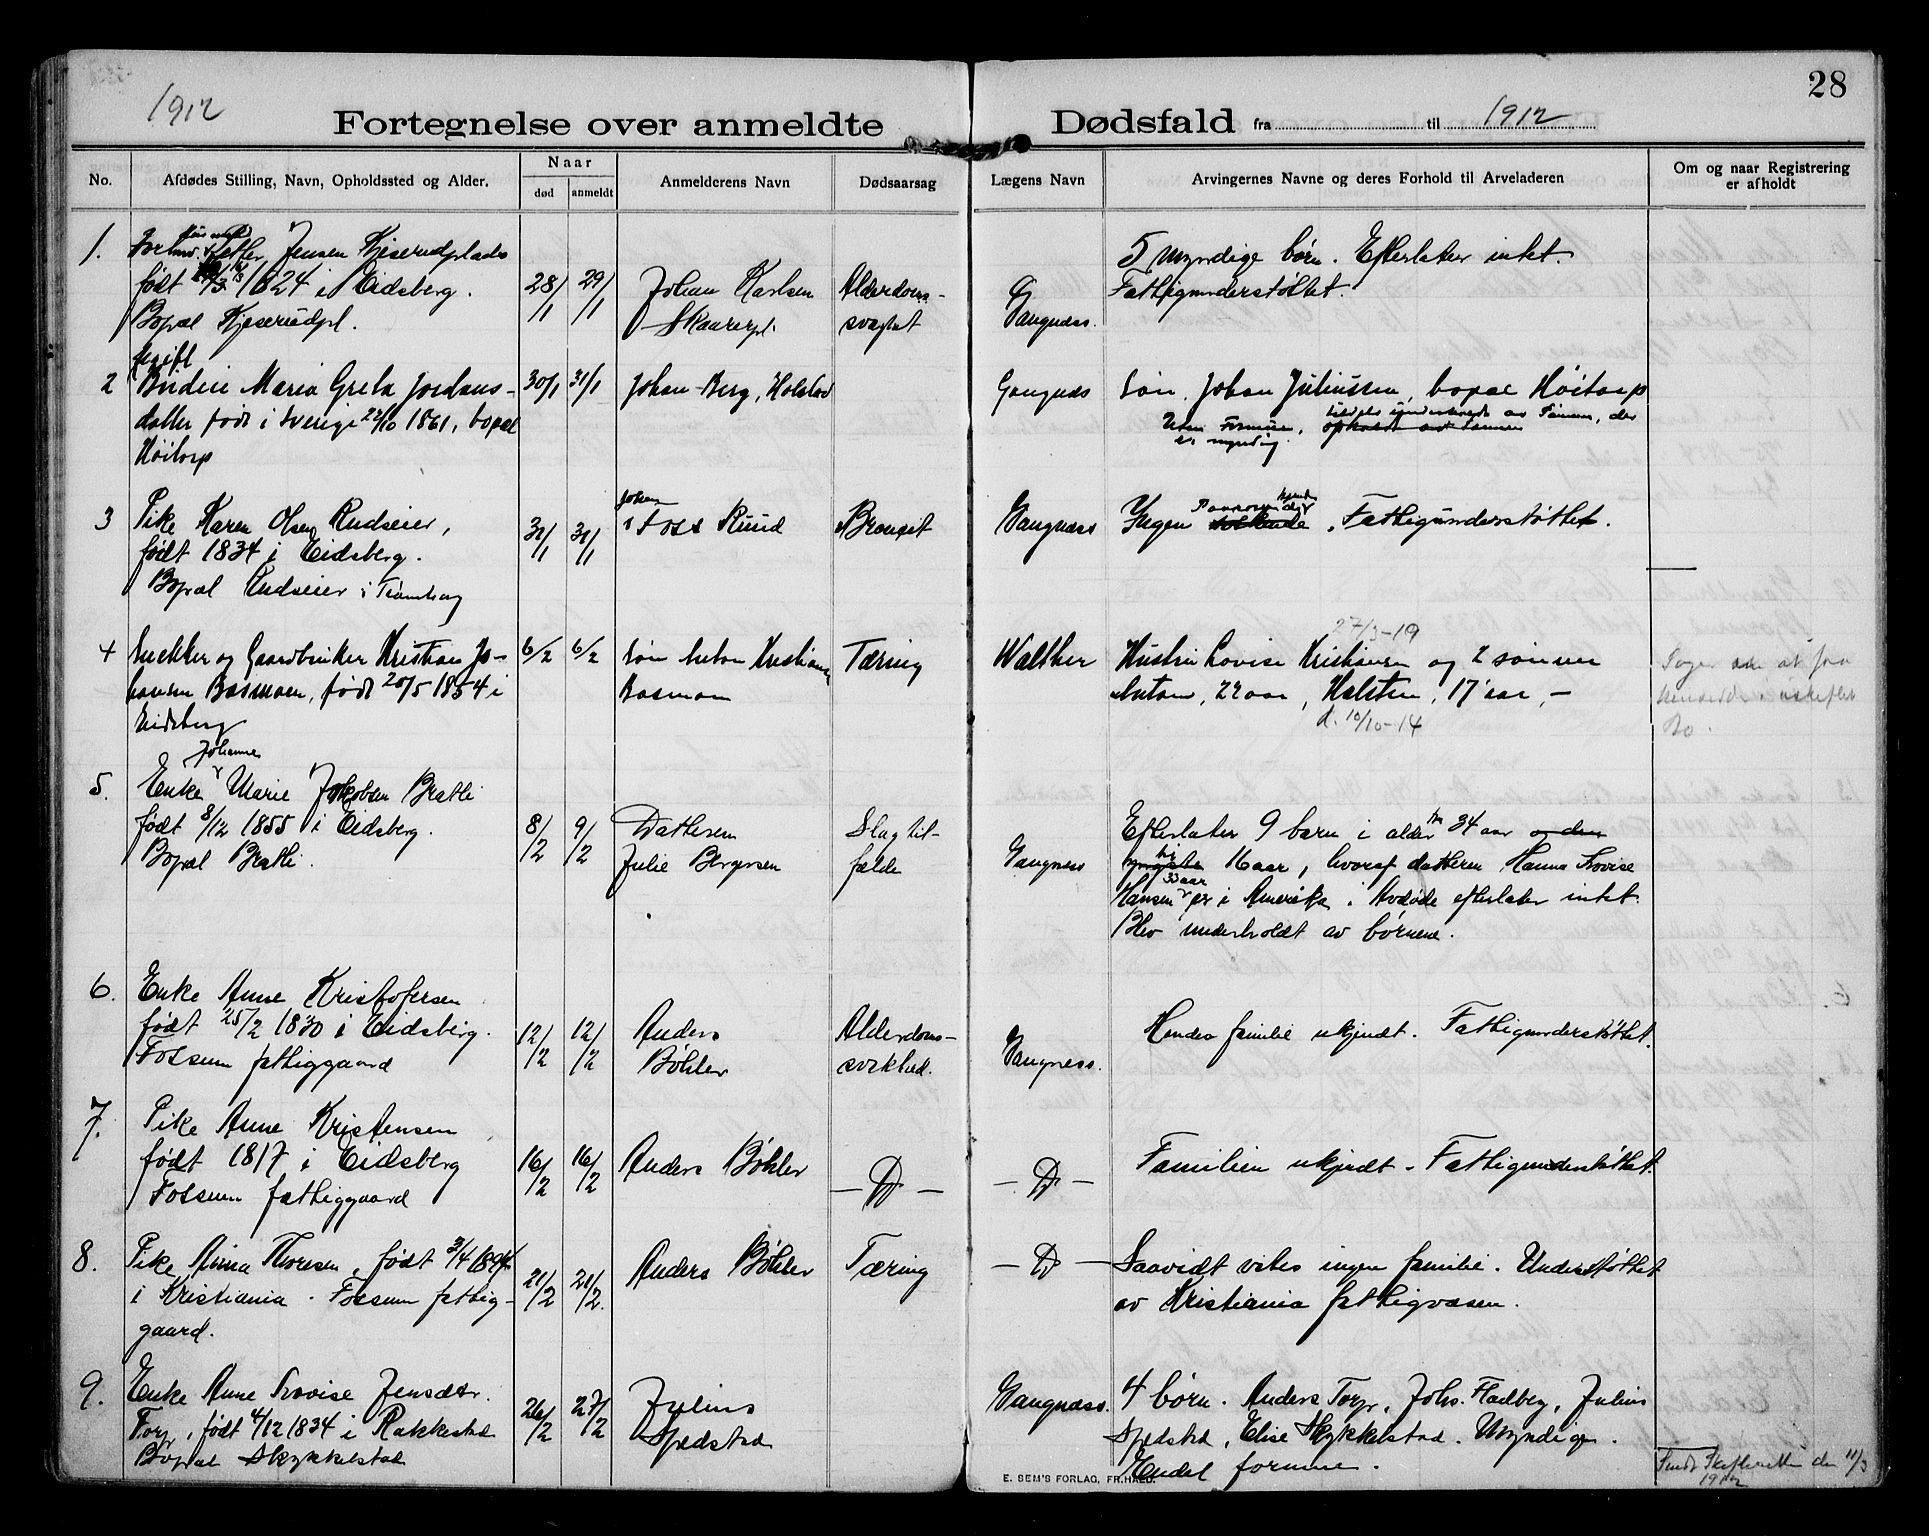 28
1912
Fortegnelse over anmeldte Dødsfald fra til 1912
No.
Afdødes Stilling, Navn, Opholdssted og Alder.
Naar
død
anmeldt
Anmelderens Navn
Dødsaarsag
Lægens Navn
Arvingernes Navne og deres Forhold til Arveladeren
Om og naar Registrering
er afholdt
1.
Jensen Kjeserudplads
født 1824 i Eidsberg.
Bopæl Kjeserudpl.
ugift
28/1
29/1
Johan Karlsen
Skaarerpl.
Alderdoms-
svaghet
Gangnæss.
5 myndige børn. Efterlater intet.
Fattigunderstøttet.
2
Budeie Maria Greta Jordans-
datter født i Sverige 22/10 1861, bopæl
Høitorp
30/1
31/1
Johan Berg, Holstad
Gangnæs
Søn Johan Juliussen, bopæl Høitorp
Uten Formue, av Sønnen, der
er myndig.
3
Pike Karen Olsen Rudseier,
født 1834 i Eidsberg.
Bopæl Rudseier i Trømborg
31/1
31/1
Johan
Foss Ruud
Bronkit
Gangnæss
Ingen . Fattigunderstøttet.
4
Snekker og Gaardbruker Kristian Jo-
hansen Basmoen, født 20/5 1854 i
Eidsberg
6/2
6/2
Søn Anton Kristiansen
Basmoen
Tæring
Walther
27/3-19
Hustru Lovise Kristiansen og 2 sønner
Anton, 22 aar, Halsten, 17 aar, -
d. 10/10-14
Bo.
5.
Johanne
Enke Marie Jakobsen Bratli
født 8/12 1855 i Eidsberg.
Bopæl Bratli.
8/2
9/2
Datteren
Julie Bergersen
Slagtil-
fælde
Gangness
Efterlater 9 barn i alder fra 34 aar og den
yngste til 16 aar, hvoraf datteren Hanna Lovise
33 aar
Hansen er i Amerika. Avdøde efterlater intet.
Blev underholdt av børnene.
6.
Enke Anne Kristofersen
født 25/2 1830 i Eidsberg.
Fossum fattiggaard
12/2
12/2
Anders
Bøhler
Alderdoms-
svakhed.
Gangness.
Hendes familie ukjendt. Fattigunderstøttet.
7.
Pike Anne Kristensen
født 1817 i Eidsberg
Fossum fattiggaard
16/2
16/2
Anders Bøhler
- D -
- D -
Familien ukjendt - Fattigunderstøttet.
8.
Pike Anna Thoresen, født 3/4
i Kristiania. Fossum fattig-
gaard.
21/2
21/2.
Anders Bøhler
Tæring
- D -
Saavidt vites ingen familie. Understøttet
av Kristiania fattigvæsen.
9.
Enke Anne Lovise Jensdtr.
Torp, født 4/12 1834 i Rakkestad
Bopæl Skykkelstad
26/2
27/2
Julius
Spedstad
Gangnæss.
4 børn. Anders Torp, Johs. Fladberg, Julius
Spedstad, Elise Skykkelstad. Myndige.
Endel formue.
Skifteretten den 11/3
1912
E. SEM'S FORLAG, FR.HALD.